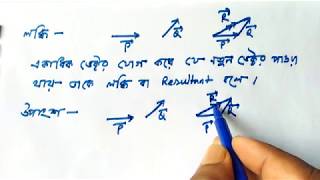 লব্ধি — P Q R P Q
একাধিক ভেক্টর যোগ করে যে নতুন ভেক্টর পাওয়া
যায় তাকে লব্ধি বা Resultant বলে।
উপাংশ — P Q R P Q